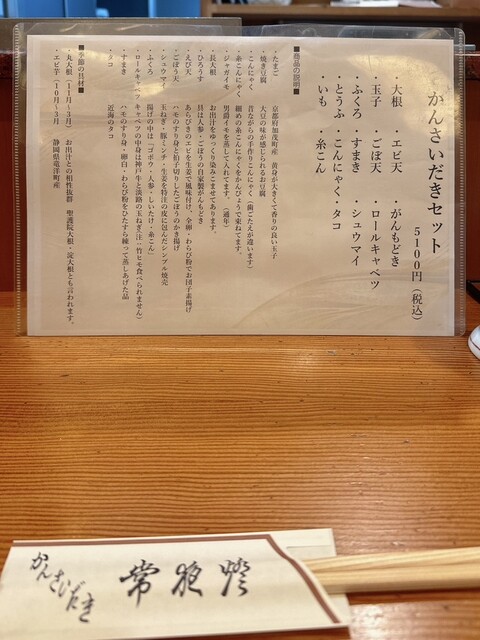 かんさいだきセット
5100円(税込)
・大根 ・エビ天 ・がんもどき
・玉子 ・ごぼ天 ・ロールキャベツ
・ふくろ ・すまき ・シュウマイ
・とうふ ・こんにゃく ・タコ
・いも ・糸こん
■商品の説明■
・たまご 京都府加茂町産 黄身が大きくて香りの良い玉子
・焼き豆腐 大豆の味が感じられるお豆腐
・こんにゃく 昔ながらの手作りこんにゃく(歯ごたえが違います)
・糸こんにゃく 細めの糸こんにゃくをかんぴょうで束ねてます。
・ジャガイモ 男爵イモを蒸して入れてます。(通年)
・長大根 お出汁をゆっくり染みこませてあります。
・ひろうす 具は人参・ごぼうの自家製がんもどき
・えび天 あらびきのエビを生姜で風味付け、全卵・わらび粉でお団子素揚げ
・ごぼう天 ハモのすり身と拍子切りしたごぼうのかき揚げ
・シュウマイ 玉ねぎ・豚ミンチ・生姜を特注の皮に包んだシンプル焼売
・ふくろ 揚げの中は「ゴボウ・人参・しいたけ・糸こん」
・ロールキャベツ キャベツの中身は神戸牛と淡路の玉ねぎ(注…竹ヒモ食べられません)
・すまき ハモのすり身・卵白・わらび粉をひたすら練って蒸しあげた品
・タコ 近海のタコ
■季節の具材■
・丸大根 (11月~3月) お出汁との相性抜群 聖護院大根・淀大根とも言われます。
・エビ芋 (10月~3月) 静岡県竜洋町産
かんさいだき
常夜燈